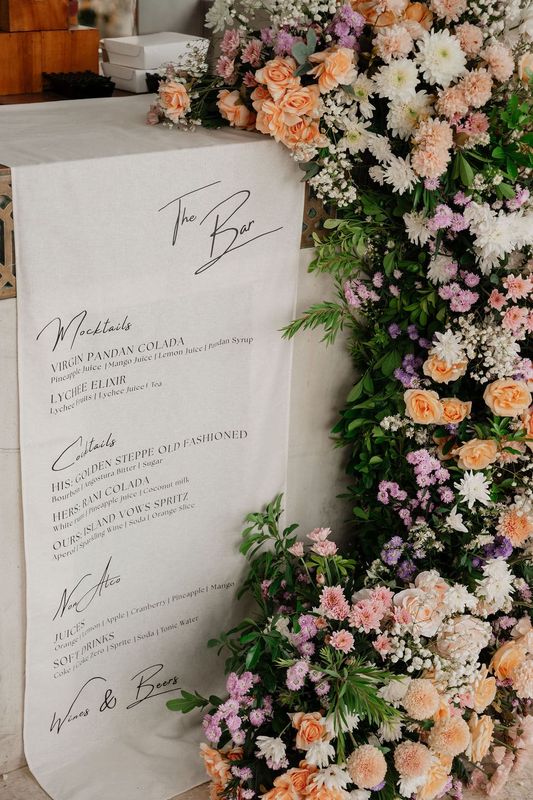 The Bar
Mocktails
VIRGIN PANDAN COLADA
Pineapple Juice | Mango Juice | Lemon Juice | Pandan Syrup
LYCHEE ELIXIR
Lychee Fruits | Lychee Juice | Tea
Cocktails
HIS: GOLDEN STEPPE OLD FASHIONED
Bourbon | Angostura Bitter | Sugar
HERS: RANI COLADA
White rum | Pineapple Juice | Coconut milk
OURS: ISLAND VOWS SPRITZ
Aperol | Sparkling Wine | Soda | Orange Slice
Non Alco
JUICES
Orange | Lemon | Apple | Cranberry | Pineapple | Mango
SOFT DRINKS
Coke | Coke Zero | Sprite | Soda | Tonic Water
Wines & Beers